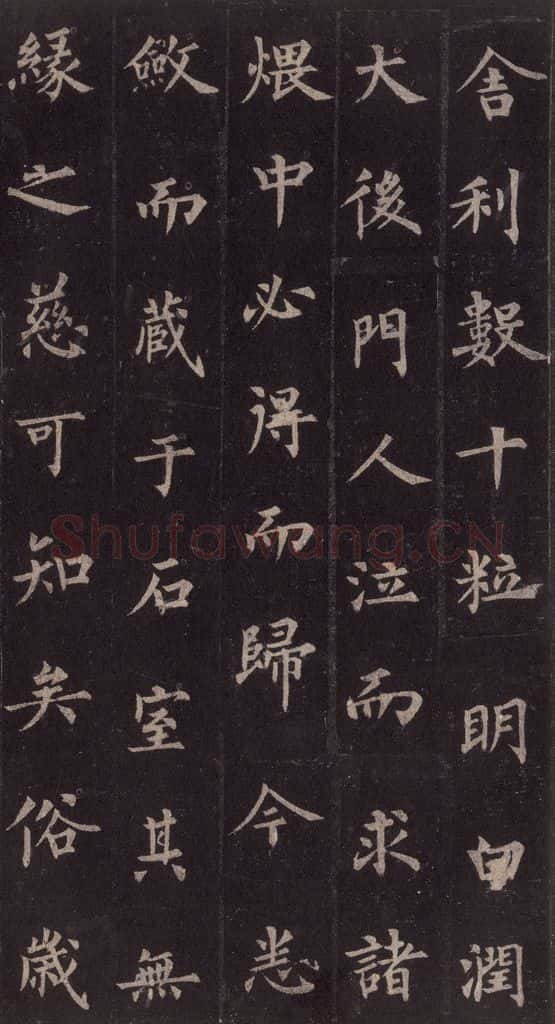 舍利數十粒明白潤
大後門人泣而求諸
煨中必得而歸今悉
斂而藏于石室其無
緣之慈可知矣俗歲
Shufawang.CN